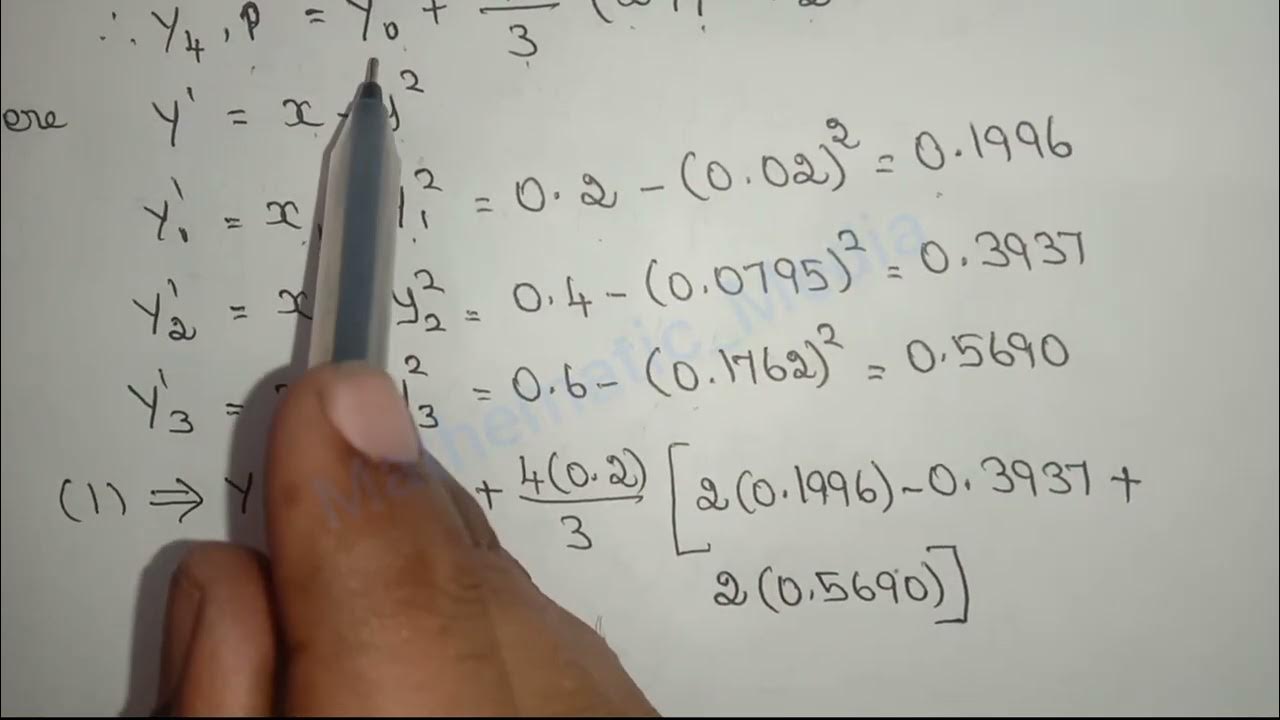 ∴ Y₄,p = Y₀ + 3
ere Y' = x - y²
Y₁' = x 1₁² = 0.2 - (0.02)² = 0.1996
Y₂' = x y₂² = 0.4 - (0.0795)² = 0.3937
Y₃' = ₃² = 0.6 - (0.1762)² = 0.5690
(1) ⇒ Y + 4(0.2)/3 [2(0.1996) - 0.3937 +
2(0.5690)]
Mathematic_Media